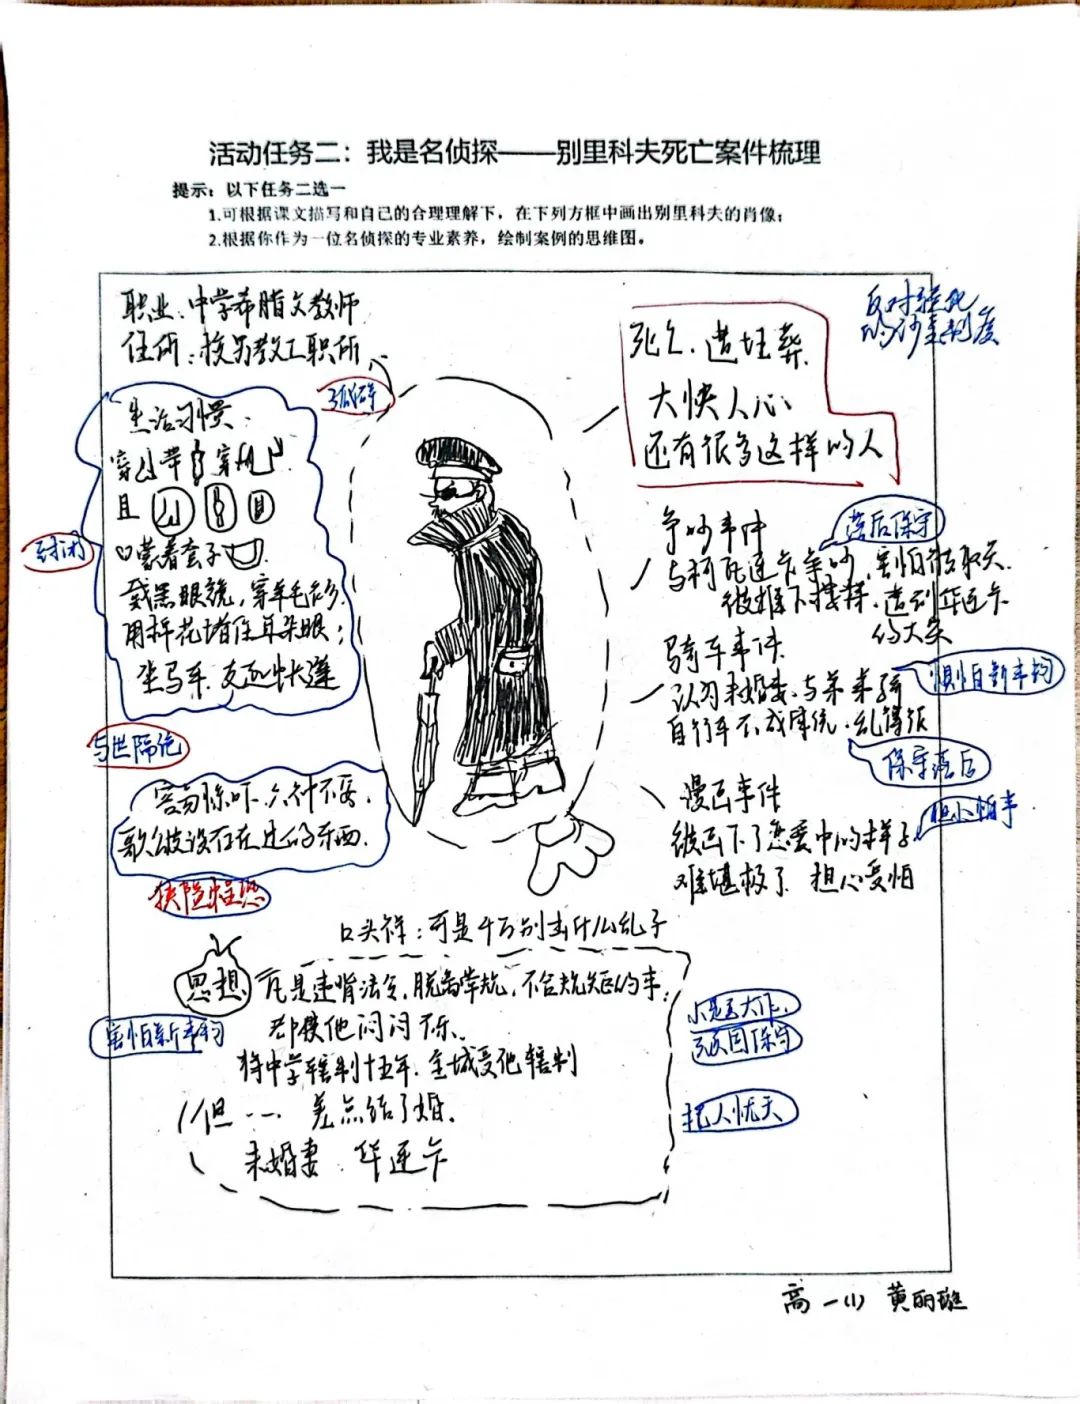 活动任务二：我是名侦探——别里科夫死亡案件梳理
提示：以下任务二选一
1.可根据课文描写和自己的合理理解下，在下列方框中画出别里科夫的肖像；
2.根据你作为一位名侦探的专业素养，绘制案例的思维图。
职业：中学希腊文教师
住所：校另教工职所
孤僻
生活习惯
穿 带 穿
且
口蒙着套子
戴黑眼镜，穿羊毛衫
用棉花堵住耳朵眼；
坐马车 支起车篷
封闭
与世隔绝
害怕 六神不安
歌 没存在过的东西
口头禅：可是千万别出什么乱子
思想
凡是违背法令，脱离常规，不合规矩的事，
却使他闷闷不乐
将中学辖制十五年，全城受他辖制
但…… 差点结了婚
未婚妻 华连卡
害怕新事物
小题大作
顽固保守
杞人忧天
死亡，遭埋葬
大快人心
还有很多这样的人
反对
的沙皇制度
争吵事件
与柯瓦连卡争吵，害怕
被推下楼梯，遭到华连卡
的大笑
落后保守
骑车事件
认为未婚妻与弟弟骑
自行车不成体统，乱得很
惧怕新事物
保守落后
漫画事件
被画下了恋爱中的样子
难堪极了 担心受怕
胆小怕事
高一(1) 黄丽